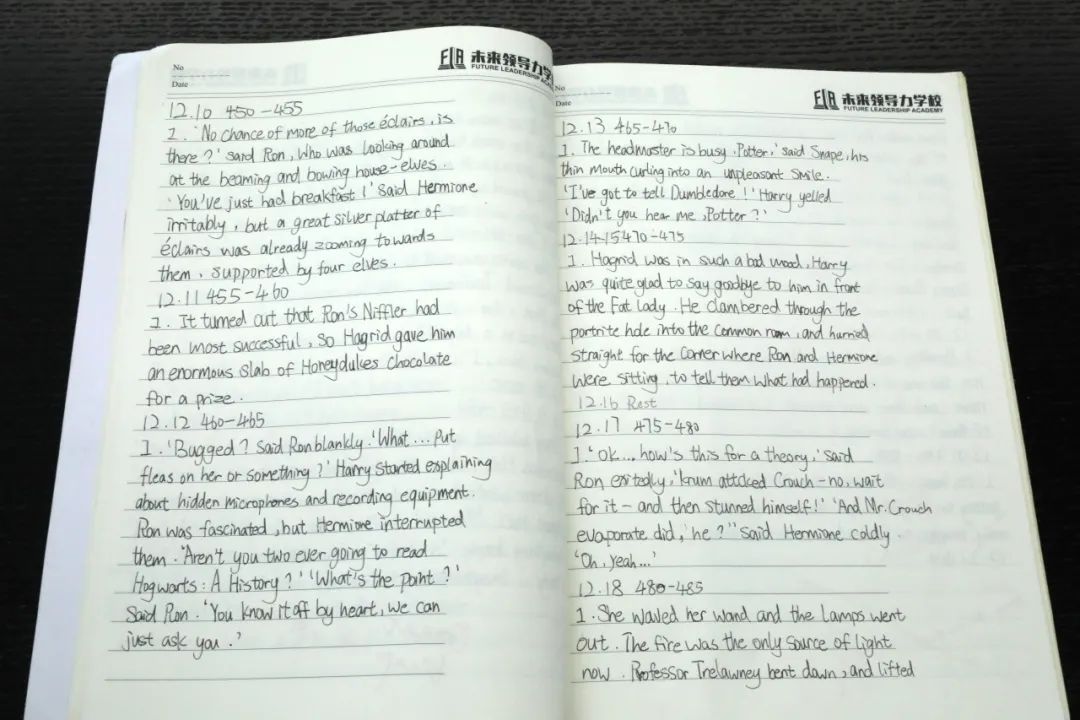 No
Date
FLA 未来领导力学
FUTURE LEADERSHIP ACA
12.10 450-455
1. 'No chance of more of those éclairs, is
there?' said Ron, who was looking around
at the beaming and bowing house-elves.
'You've just had breakfast!' said Hermione
irritably, but a great silver platter of
éclairs was already zooming towards
them, supported by four elves.
12.11 455-460
1. It turned out that Ron's Niffler had
been most successful, so Hagrid gave him
an enormous slab of Honeydukes chocolate
for a prize.
12.12 460-465
1. 'Bugged? said Ron blankly. 'What... put
fleas on her or something?' Harry started explaining
about hidden microphones and recording equipment.
Ron was fascinated, but Hermione interrupted
them. 'Aren't you two ever going to read
Hogwarts: A History?' 'What's the point?'
Said Ron. 'You know it off by heart, we can
just ask you.'
No
Date
FLA 未来领导力学校
FUTURE LEADERSHIP ACADEMY
12.13 465-470
1. The headmaster is busy, Potter,' said Snape, his
thin mouth curling into an unpleasant smile.
'I've got to tell Dumbledore!' Harry yelled
'Didn't you hear me, Potter?'
12.14-15 470-475
1. Hagrid was in such a bad mood, Harry
was quite glad to say goodbye to him in front
of the Fat Lady. He clambered through the
portrite hole into the common room, and hurried
straight for the corner where Ron and Hermione
were sitting, to tell them what had happened.
12.16 Rest
12.17 475-480
1. 'ok... how's this for a theory,' said
Ron, exitedly, 'krum attcked Crouch - no, wait
for it - and then stunned himself!' 'And Mr. Crouch
evaporate did, he?'' said Hermione coldly.
'Oh, yeah...'
12.18 480-485
1. She waved her wand and the lamps went
out. The fire was the only source of light
now. Professor Trelawney bent down, and lifted